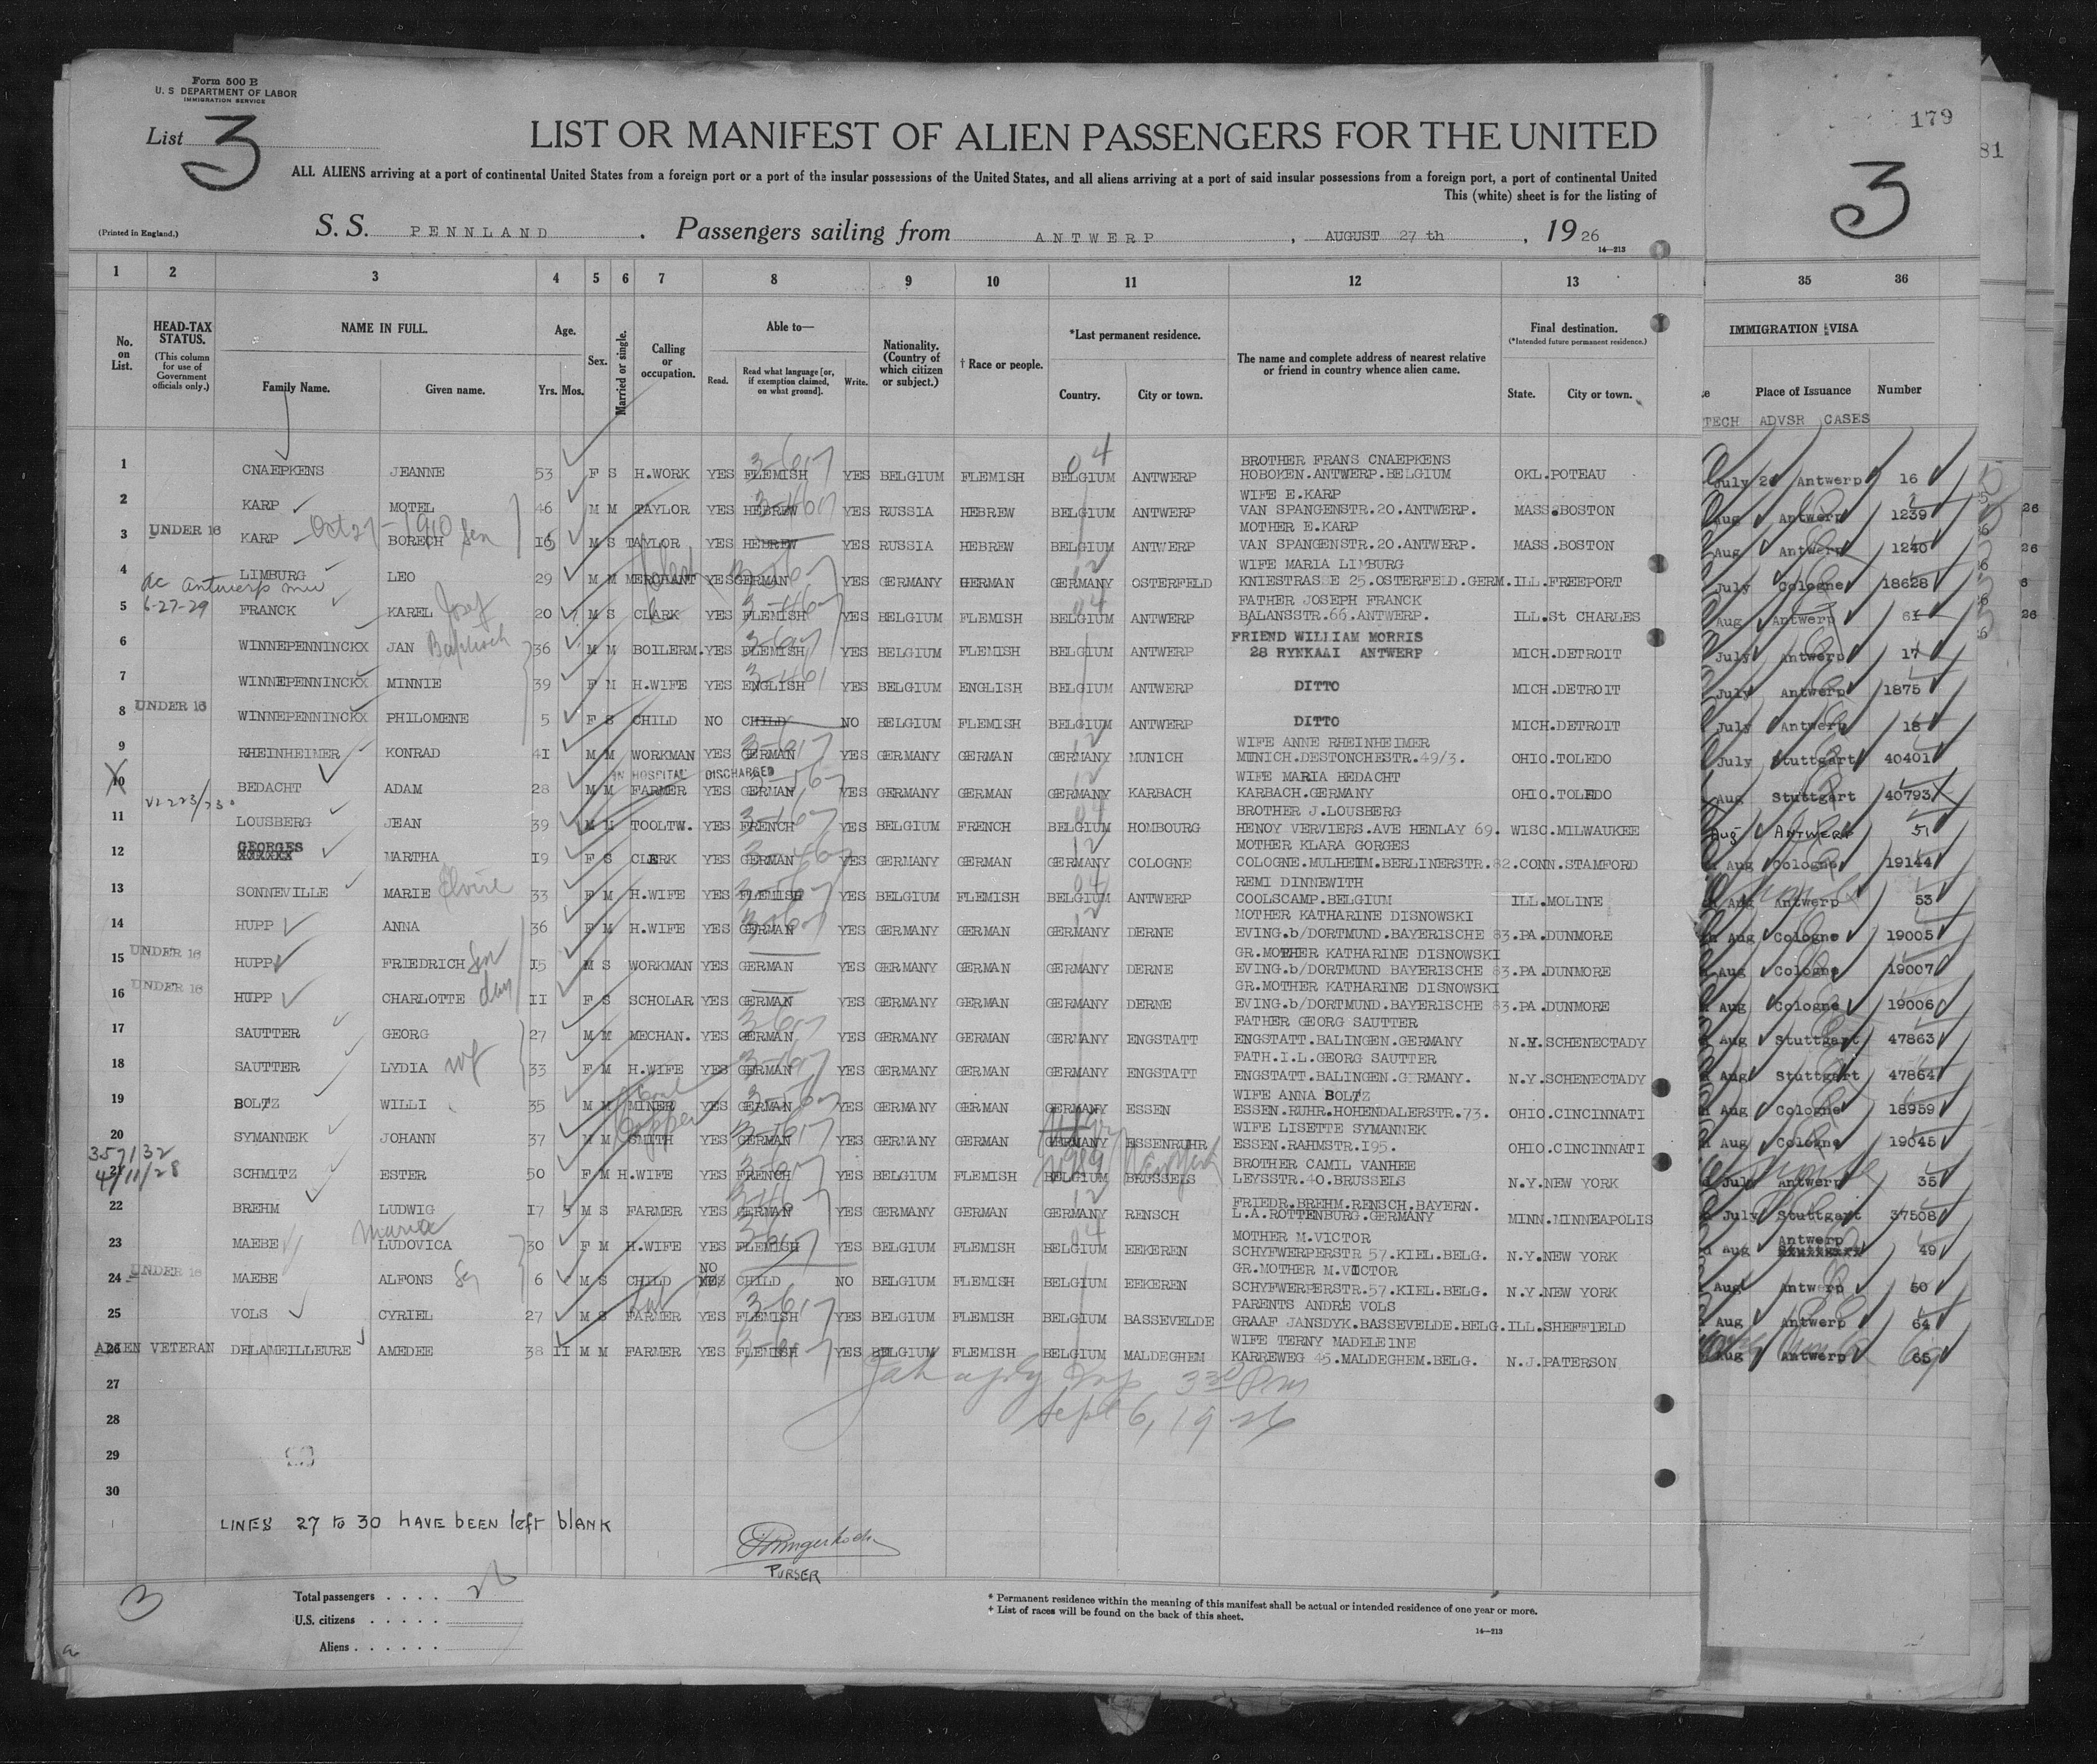 Form 500 B
U. S DEPARTMENT OF LABOR
IMMIGRATION SERVICE
List 3
LIST OR MANIFEST OF ALIEN PASSENGERS FOR THE UNITED
179
81
3
ALL ALIENS arriving at a port of continental United States from a foreign port or a port of the insular possessions of the United States, and all aliens arriving at a port of said insular possessions from a foreign port, a port of continental United
This (white) sheet is for the listing of
(Printed in England.)
S. S. PENNLAND. Passengers sailing from ANTWERP, AUGUST 27th, 1926
14—213
1 2 3 4 5 6 7 8 9 10 11 12 13 35 36
No. on List.
HEAD-TAX STATUS.
(This column for use of Government officials only.)
NAME IN FULL.
Family Name. Given name.
Age.
Yrs. Mos.
Sex.
Married or single.
Calling or occupation.
Able to—
Read. Read what language [or, if exemption claimed, on what ground]. Write.
Nationality. (Country of which citizen or subject.)
† Race or people.
*Last permanent residence.
Country. City or town.
The name and complete address of nearest relative or friend in country whence alien came.
Final destination.
(*Intended future permanent residence.)
State. City or town.
IMMIGRATION VISA
Place of Issuance Number
TECH ADVSR CASES
1 CNAEPKENS JEANNE 53 F S H.WORK YES FLEMISH YES BELGIUM FLEMISH BELGIUM ANTWERP BROTHER FRANS CNAEPKENS HOBOKEN.ANTWERP.BELGIUM OKL.POTEAU July 2 Antwerp 16
2 KARP MOTEL 46 M M TAYLOR YES HEBREW YES RUSSIA HEBREW BELGIUM ANTWERP WIFE E.KARP VAN SPANGENSTR.20.ANTWERP. MASS.BOSTON Aug Antwerp 1239
3 UNDER 16 KARP Oct 27-1910 BORECH Son 16 M S TAYLOR YES HEBREW YES RUSSIA HEBREW BELGIUM ANTWERP MOTHER E.KARP VAN SPANGENSTR.20.ANTWERP. MASS.BOSTON Aug Antwerp 1240
4 LIMBURG LEO 29 M M MERCHANT YES GERMAN YES GERMANY GERMAN GERMANY OSTERFELD WIFE MARIA LIMBURG KNIESTRASSE 25.OSTERFELD.GERM. ILL.FREEPORT July Cologne 18628
5 6-27-29 FRANCK KAREL Josef 20 M S CLARK YES FLEMISH YES BELGIUM FLEMISH BELGIUM ANTWERP FATHER JOSEPH FRANCK BALANSSTR.66.ANTWERP. ILL.St CHARLES Aug Antwerp 61
6 WINNEPENNINCKX JAN 36 M M BOILERM. YES FLEMISH YES BELGIUM FLEMISH BELGIUM ANTWERP FRIEND WILLIAM MORRIS 28 RYNKAAI ANTWERP MICH.DETROIT July Antwerp 17
7 WINNEPENNINCKX MINNIE 39 F M H.WIFE YES ENGLISH YES BELGIUM ENGLISH BELGIUM ANTWERP DITTO MICH.DETROIT July Antwerp 1875
8 UNDER 16 WINNEPENNINCKX PHILOMENE 5 F S CHILD NO CHILD NO BELGIUM FLEMISH BELGIUM ANTWERP DITTO MICH.DETROIT July Antwerp 18
9 RHEINHEIMER KONRAD 41 M M WORKMAN YES GERMAN YES GERMANY GERMAN GERMANY MUNICH WIFE ANNE RHEINHEIMER MUNICH.DESTONCHESTR.49/3. OHIO.TOLEDO July Stuttgart 40401
IN HOSPITAL DISCHARGED
10 BEDACHT ADAM 28 M M FARMER YES GERMAN YES GERMANY GERMAN GERMANY KARBACH WIFE MARIA BEDACHT KARBACH.GERMANY OHIO.TOLEDO Aug Stuttgart 40793
11 LOUSBERG JEAN 39 M M TOOLTW. YES FRENCH YES BELGIUM FRENCH BELGIUM HOMBOURG BROTHER J.LOUSBERG HENOY VERVIERS.AVE HENLAY 69. WISC.MILWAUKEE Aug Antwerp 51
12 GEORGES MARTHA 19 F S CLERK YES GERMAN YES GERMANY GERMAN GERMANY COLOGNE MOTHER KLARA GORGES COLOGNE.MULHEIM.BERLINERSTR.82. CONN.STAMFORD Aug Cologne 19144
13 SONNEVILLE MARIE Elvire 33 F M H.WIFE YES FLEMISH YES BELGIUM FLEMISH BELGIUM ANTWERP REMI DINNEWITH COOLSCAMP.BELGIUM ILL.MOLINE Aug Antwerp 53
14 HUPP ANNA 36 F M H.WIFE YES GERMAN YES GERMANY GERMAN GERMANY DERNE MOTHER KATHARINE DISNOWSKI EVING.b/DORTMUND.BAYERISCHE 83. PA.DUNMORE Aug Cologne 19005
15 UNDER 16 HUPP FRIEDRICH Son 15 M S WORKMAN YES GERMAN YES GERMANY GERMAN GERMANY DERNE GR.MOTHER KATHARINE DISNOWSKI EVING.b/DORTMUND BAYERISCHE 83. PA.DUNMORE Aug Cologne 19007
16 UNDER 16 HUPP CHARLOTTE dau 11 F S SCHOLAR YES GERMAN YES GERMANY GERMAN GERMANY DERNE GR.MOTHER KATHARINE DISNOWSKI EVING.b/DORTMUND.BAYERISCHE 83. PA.DUNMORE Aug Cologne 19006
17 SAUTTER GEORG 27 M M MECHAN. YES GERMAN YES GERMANY GERMAN GERMANY ENGSTATT FATHER GEORG SAUTTER ENGSTATT.BALINGEN.GERMANY N.Y.SCHENECTADY Aug Stuttgart 47863
18 SAUTTER LYDIA wf 33 F M H.WIFE YES GERMAN YES GERMANY GERMAN GERMANY ENGSTATT FATH.I.L.GEORG SAUTTER ENGSTATT.BALINGEN.GERMANY. N.Y.SCHENECTADY Aug Stuttgart 47864
19 BOLTZ WILLI 35 M M MINER YES GERMAN YES GERMANY GERMAN GERMANY ESSEN WIFE ANNA BOLTZ ESSEN.RUHR.HOHENDALERSTR.73. OHIO.CINCINNATI Aug Cologne 18959
20 SYMANNEK JOHANN 37 M M Copper SMITH YES GERMAN YES GERMANY GERMAN GERMANY ESSENRUHR WIFE LISETTE SYMANNEK ESSEN.RAHMSTR.195. OHIO.CINCINNATI Aug Cologne 19045
21 SCHMITZ ESTER 50 F M H.WIFE YES FRENCH YES BELGIUM FLEMISH BELGIUM BRUSSELS BROTHER CAMIL VANHEE LEYSSTR.40.BRUSSELS N.Y.NEW YORK July Antwerp 35
22 BREHM LUDWIG 17 5 M S FARMER YES GERMAN YES GERMANY GERMAN GERMANY RENSCH FRIEDR.BREHM.RENSCH.BAYERN. L.A.ROTTENBURG.GERMANY MINN.MINNEAPOLIS July Stuttgart 37508
23 MAEBE Maria LUDOVICA 30 F M H.WIFE YES FLEMISH YES BELGIUM FLEMISH BELGIUM EEKEREN MOTHER M.VICTOR SCHYFWERPERSTR 57.KIEL.BELG. N.Y.NEW YORK Aug Antwerp 49
24 UNDER 16 MAEBE ALFONS 6 M S CHILD NO CHILD NO BELGIUM FLEMISH BELGIUM EEKEREN GR.MOTHER M.VICTOR SCHYFWERPERSTR.57.KIEL.BELG. N.Y.NEW YORK Aug Antwerp 50
25 VOLS CYRIEL 27 M S FARMER YES FLEMISH YES BELGIUM FLEMISH BELGIUM BASSEVELDE PARENTS ANDRE VOLS GRAAF JANSDYK.BASSEVELDE.BELG. ILL.SHEFFIELD Aug Antwerp 64
26 ALIEN VETERAN DELAMEILLEURE AMEDEE 38 11 M M FARMER YES FLEMISH YES BELGIUM FLEMISH BELGIUM MALDEGHEM WIFE TERNY MADELEINE KARREWEG 45.MALDEGHEM.BELG. N.J.PATERSON Aug Antwerp 65
27
Sept 6, 1926
28
29
30
LINES 27 to 30 HAVE BEEN left blank
PURSER
3
Total passengers 26
U.S. citizens
Aliens
* Permanent residence within the meaning of this manifest shall be actual or intended residence of one year or more.
† List of races will be found on the back of this sheet.
14—213